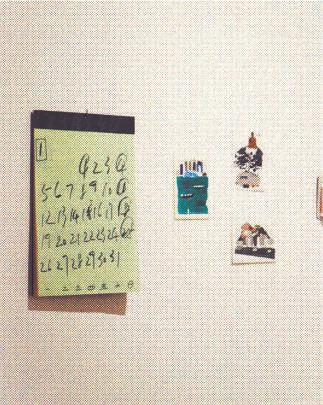 1
1 2 3 4
5 6 7 8 9 10 11
12 13 14 15 16 17 18
19 20 21 22 23 24 25
26 27 28 29 30 31